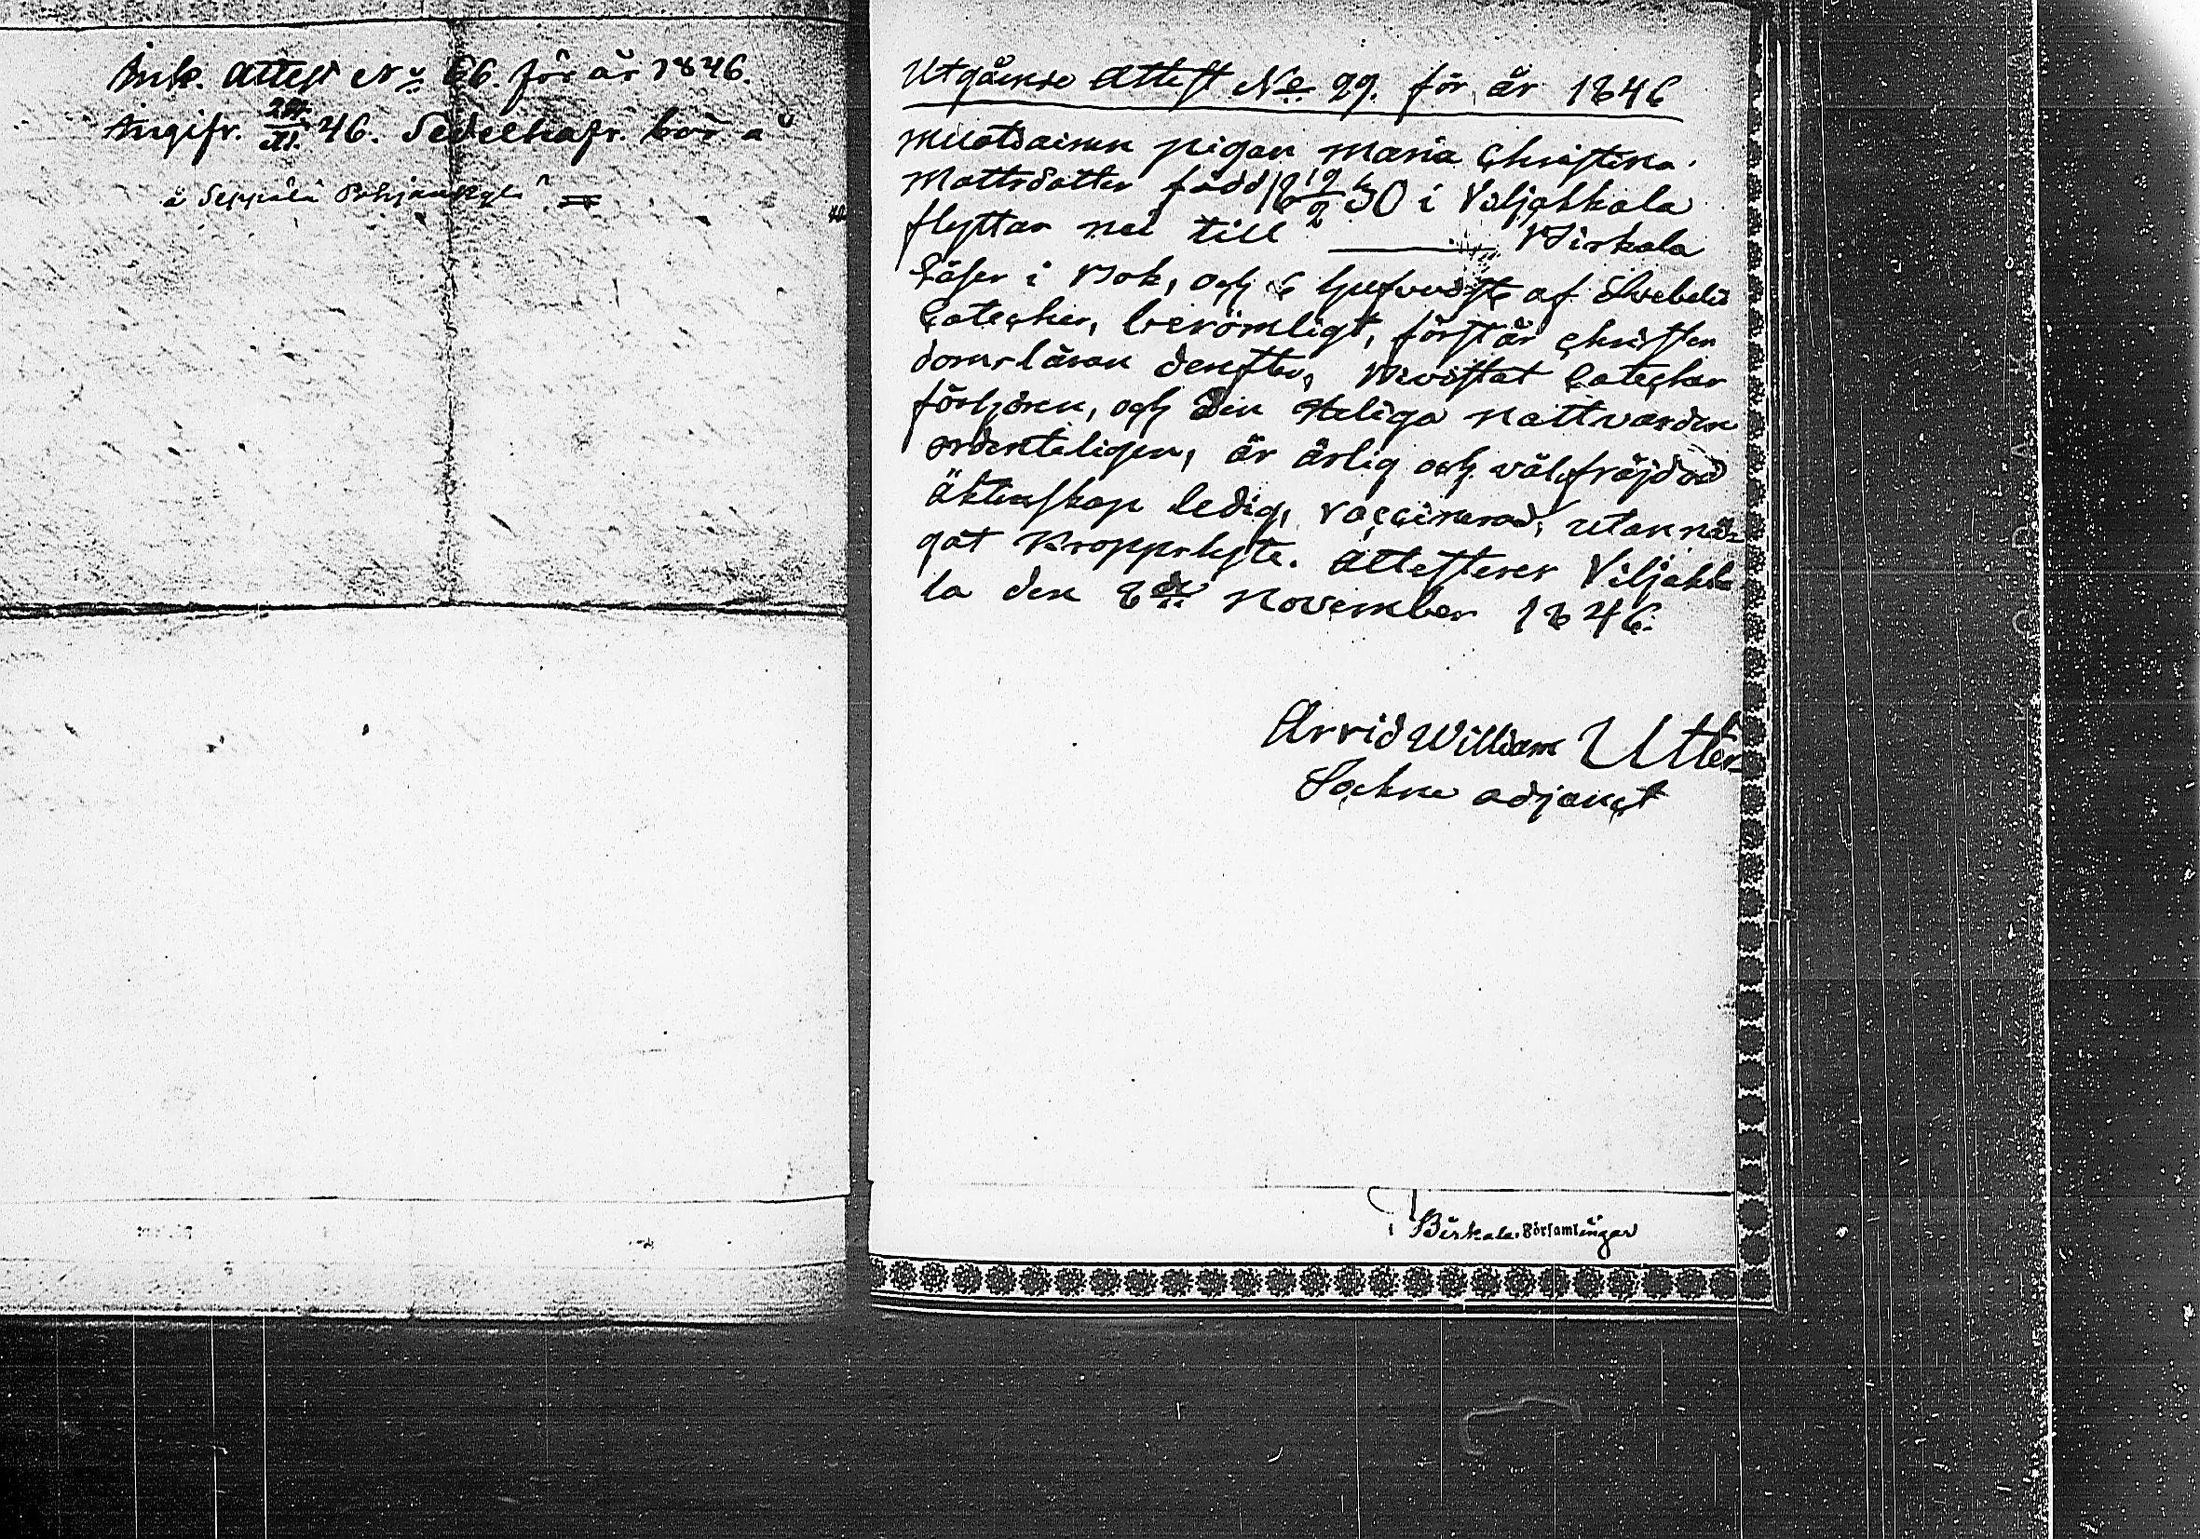 Ink. Attest No 66. för år 1846.
Angifv. 46. Sedelhafv. bor å
å Seppälä Pohjankylä
Utgående Attest No 29. för år 1846
pigan Maria Christina
Mattsdotter född 18 19/2 30 i Viljakkala
flyttar nu till Birkala
Läser i Bok, och Svebelii
Cateches, berömligt, förstår Christen
domsläran Bevistat Catechis
förhören, och den Heliga Nattvarden
ordenteligen, är ärlig och välfräjdad
Äktenskap ledig, vaccinerad, utan nå-
got Kroppslyte. Attesterer Viljakka
la den 8de November 1846.
Arvid William Utter
Sockne adjunct
i Birkala Församlingar